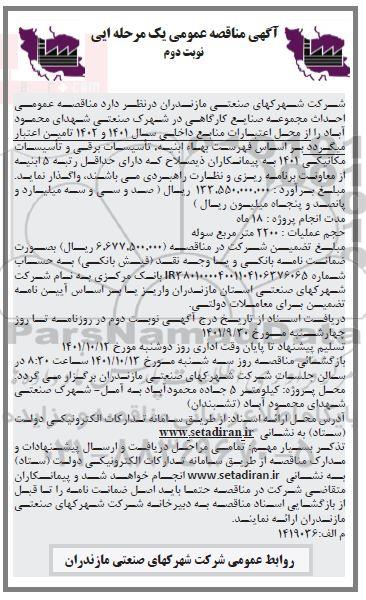 آگهی مناقصه عمومی یک مرحله ایی
نوبت دوم
شرکت شهرکهای صنعتی مازندران درنظر دارد مناقصه عمومی
احداث مجموعه صنایع کارگاهی در شهرک صنعتی شهدای محمود
آباد را از محل اعتبارات منابع داخلی سال ۱۴۰۱ و ۱۴۰۲ تامین اعتبار
میگردد بر اساس فهرست بهاء ابنیه، تاسیسات برقی و تأسیسات
مکانیکی ۱۴۰۱ به پیمانکاران ذیصلاح که دارای حداقل رتبه ۵ ابنیه
از معاونت برنامه ریزی و نظارت راهبردی می باشند، واگذار نماید.
مبلغ برآورد : ۱۳۳,۵۵۰,۰۰۰,۰۰۰ ریال ( صد و سی و سه میلیارد و
پانصد و پنجاه میلیون ریال )
مدت انجام پروژه : ۱۸ ماه
حجم عملیات : ۲۲۰۰ متر مربع سوله
مبلغ تضمین شرکت در مناقصه (۶,۶۷۷,۵۰۰,۰۰۰ ریال) بصورت
ضمانت نامه بانکی و یا وجه نقد (فیش بانکی) به حساب
شماره IR۳۸۰۱۰۰۰۰۴۰۰۱۱۰۴۱۰۶۳۷۶۰۶۵ بانک مرکزی به نام شرکت
شهرکهای صنعتی استان مازندران واریز یا بر اساس آیین نامه
تضمین برای معاملات دولتی.
دریافت اسناد از تاریخ درج آگهی نوبت دوم در روزنامه تا روز
چهارشنبه مورخ ۱۴۰۱/۹/۳۰
تسلیم پیشنهاد تا پایان وقت اداری روز دوشنبه مورخ ۱۴۰۱/۱۰/۱۲
بازگشائی مناقصه روز سه شنبه مورخ ۱۴۰۱/۱۰/۱۳ ساعت ۸:۳۰ در
سالن جلسات شرکت شهرکهای صنعتی مازندران برگزار می گردد.
محل پروژه: کیلومتر ۵ جاده محمودآباد به آمل- شهرک صنعتی
شهدای محمود آباد (تشبندان)
آدرس محل ارائه اسناد: از طریق سامانه تدارکات الکترونیکی دولت
(ستاد) به نشانی www.setadiran.ir
تذکر بسیار مهم: تمامی مراحل دریافت و ارسال پیشنهادات و
مدارک مناقصه از طریق سامانه تدارکات الکترونیکی دولت (ستاد)
به نشانی www.setadiran.ir انجام خواهد شد و پیمانکاران
متقاضی شرکت در مناقصه حتما باید اصل ضمانت نامه را تا قبل
از بازگشایی اسناد مناقصه به دبیرخانه شرکت شهرکهای صنعتی
مازندران ارائه نمایند.
م الف: ۱۴۱۹۰۳۶
روابط عمومی شرکت شهرکهای صنعتی مازندران